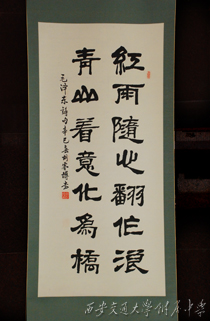 紅雨隨心翻作浪
青山着意化為橋
毛澤東詩句辛巳
西安交通大學附屬中學